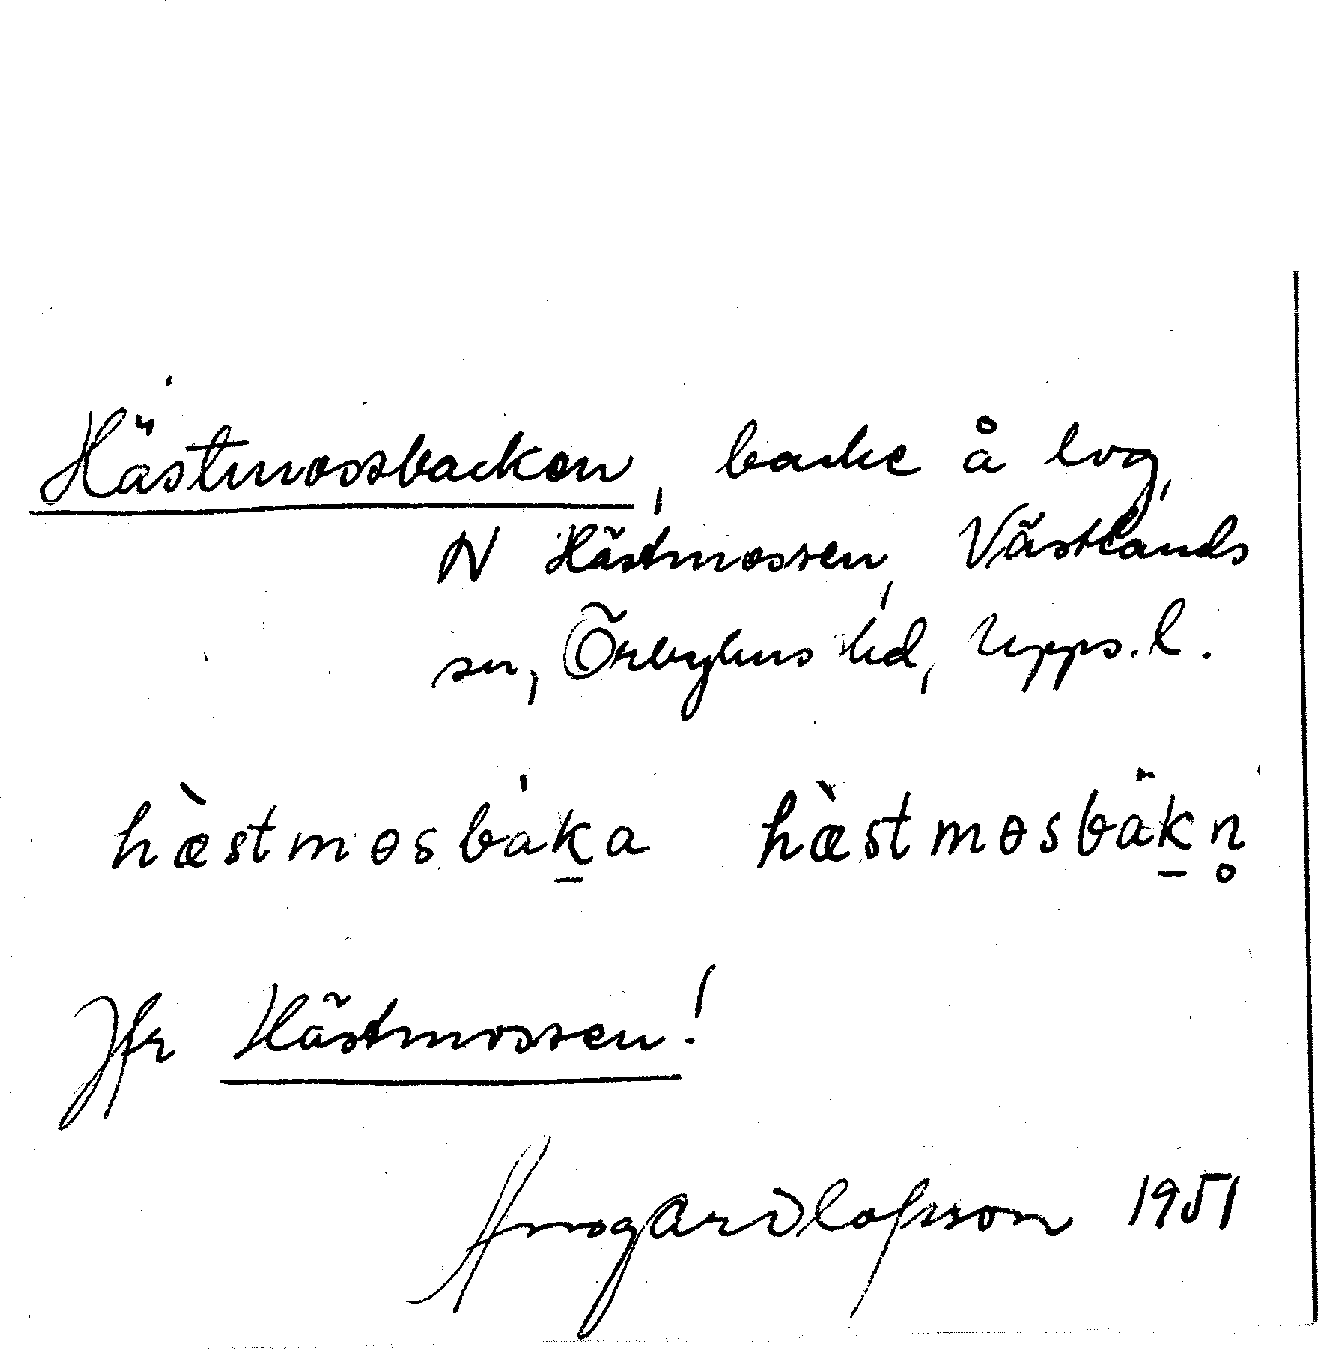 Hästmossbacken, backe å lvg,
N Hästmossen, Västlands
sn, Örbyhus hd, Upps. l.
hæ̀stmosbáḵa hæ̀stmosbäḵn̥
Jfr Hästmossen!
Ansgar Olofsson 1951